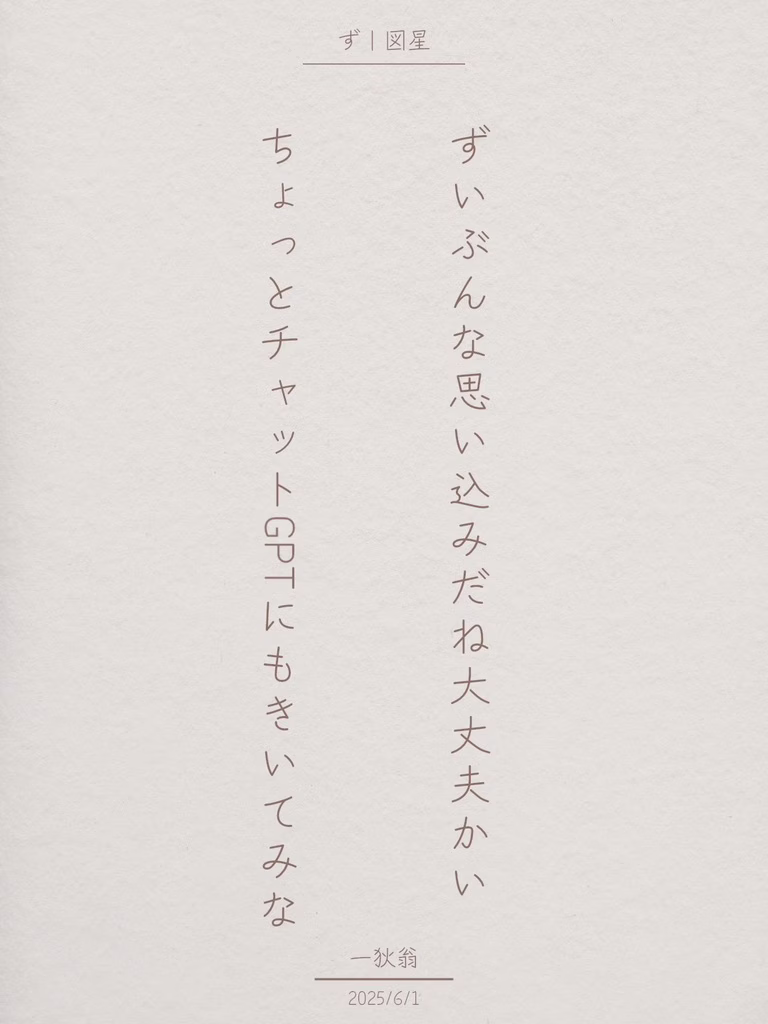 ず｜図星
ずいぶんな思い込みだね大丈夫かい
ちょっとチャットGPTにもきいてみな
一狄翁
2025/6/1